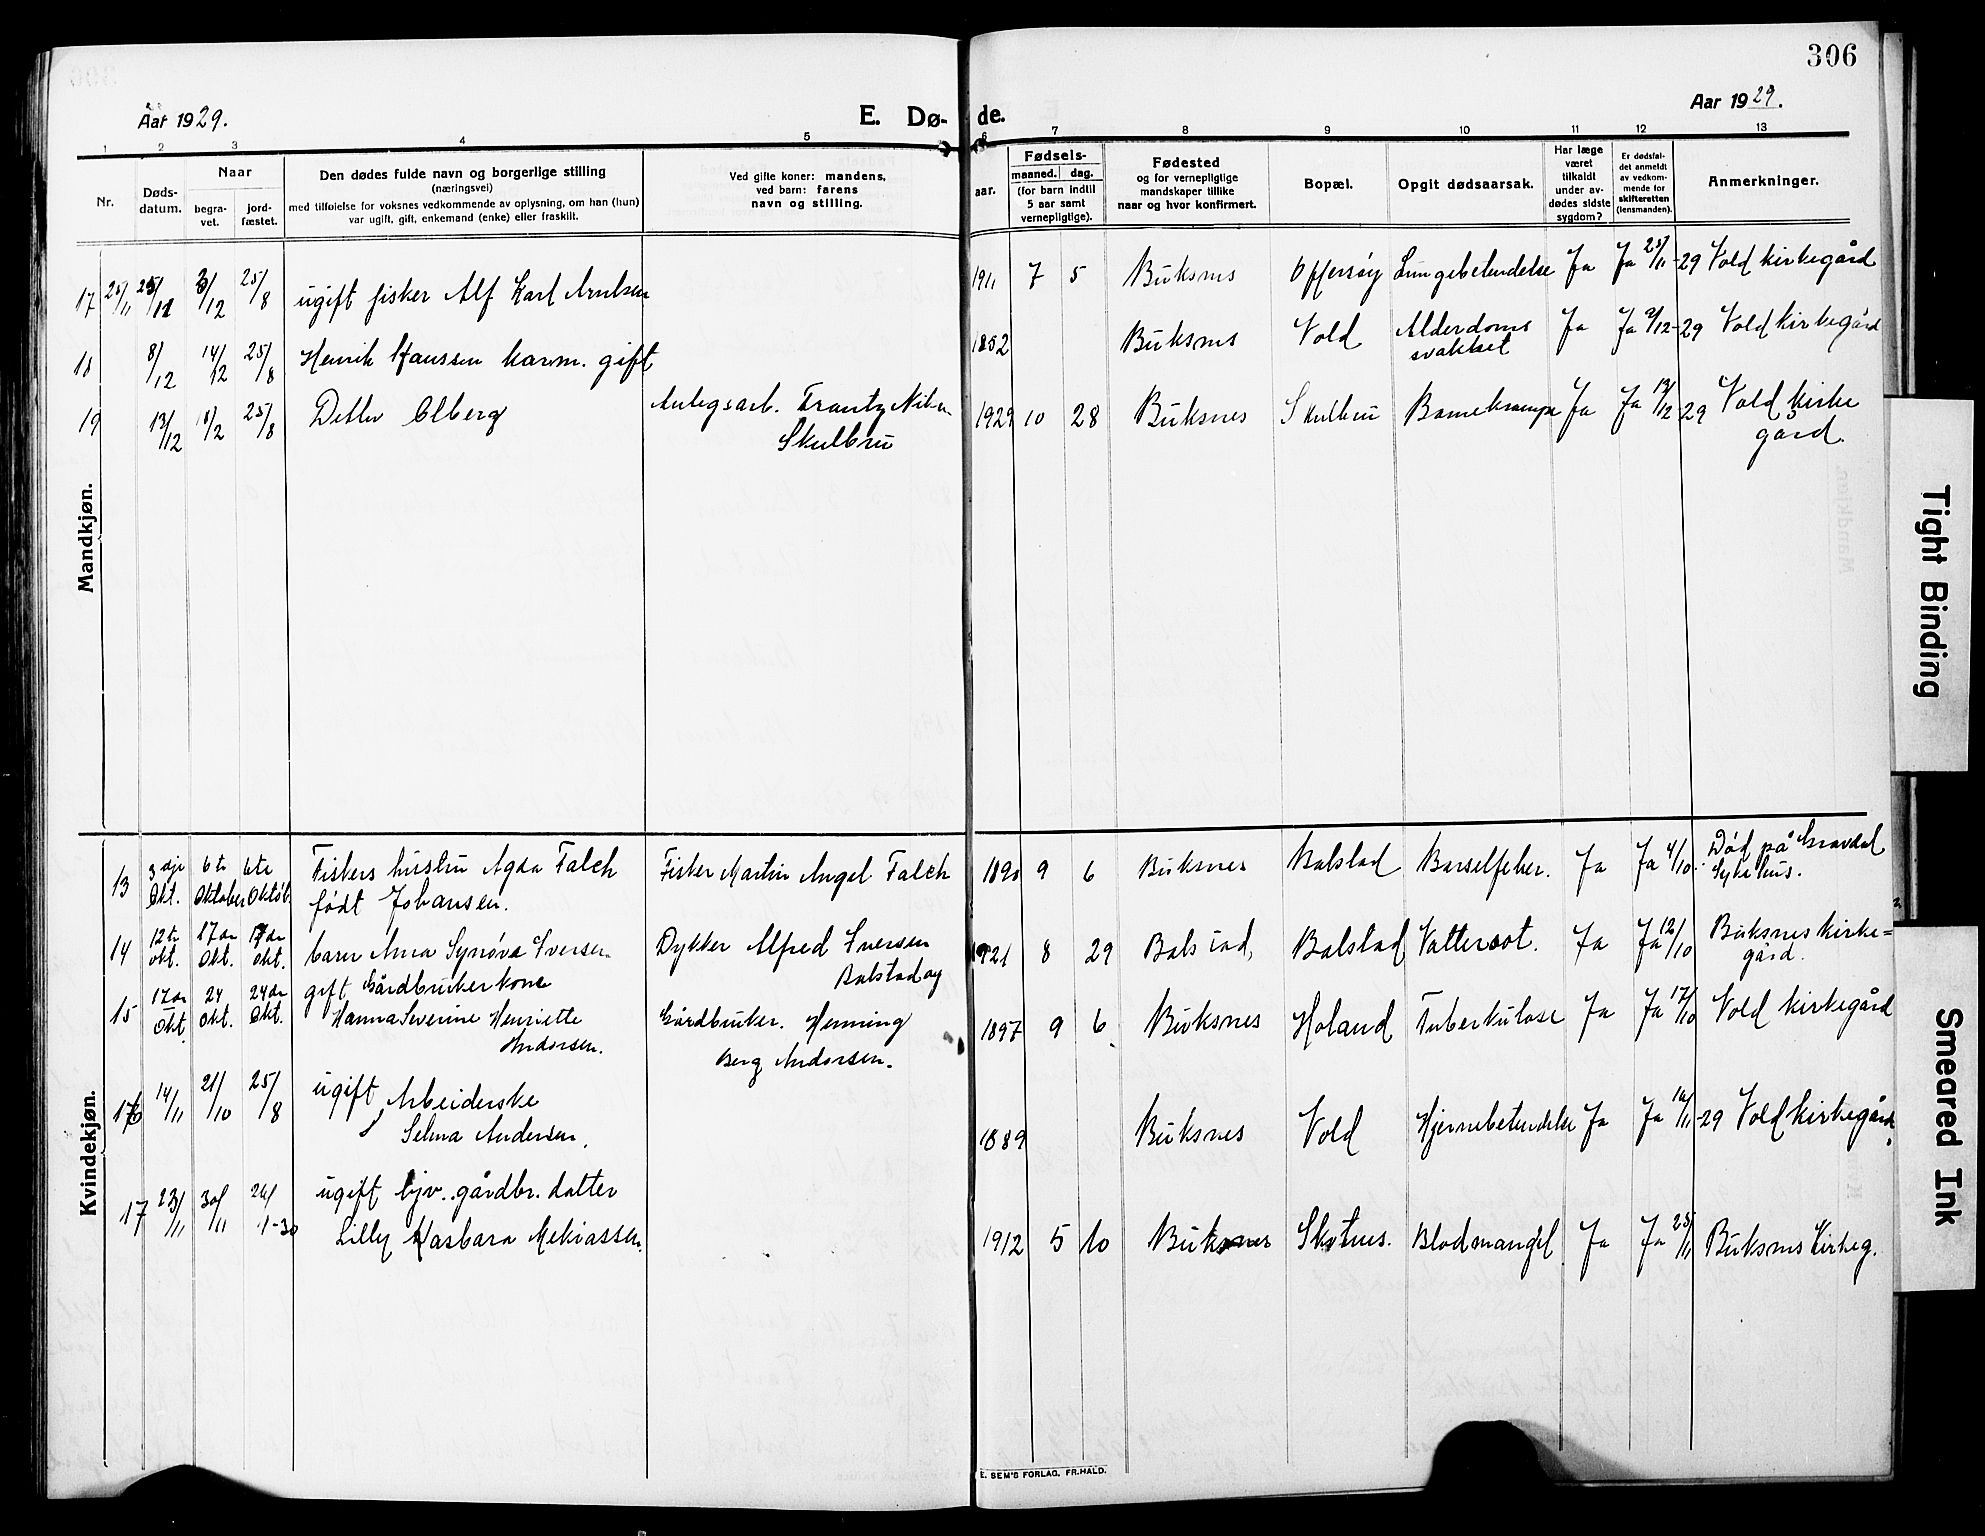 306
Aar 1929.
E. Dø-
de.
Aar 1929.
1 2 3 4 5 6 7 8 9 10 11 12 13
Nr.
Døds-
datum.
Naar
begra-
vet.
jord-
fæstet.
Den dødes fulde navn og borgerlige stilling
(næringsvei)
med tilføielse for voksnes vedkommende av oplysning, om han (hun)
var ugift, gift, enkemand (enke) eller fraskilt.
Ved gifte koner: mandens,
ved barn: farens
navn og stilling.
Fødsels-
aar.
maaned.
dag.
(for barn indtil
5 aar samt
vernepligtige).
Fødested
og for vernepligtige
mandskaper tillike
naar og hvor konfirmert.
Bopæl.
Opgit dødsaarsak.
Har læge
været
tilkaldt
under av-
dødes sidste
sygdom?
Er dødsfal-
det anmeldt
av vedkom-
mende for
skifteretten
(lensmanden).
Anmerkninger.
Mandkjøn.
17 3/12 25/8 ugift fisker Alf Karl Arntsen 1911 7 5 Buksnes Offersøy Lungebetendelse Ja Ja 25/11-29 Vold kirkegård
18 8/12 14/12 25/8 Henrik Hanssen karm. gift 1852 Buksnes Vold Alderdoms
svakhet Ja Ja 9/12-29 Vold kirkegård
19 13/12 25/8 Detlev Olberg Anlegsarb. Frantz
Skulbru 1929 10 28 Buksnes Skulbru Barnekrampe Ja Ja 13/12 29 Vold kirke
gård.
Kvindekjøn.
13 3dje
Okt. 6te
Oktober 6te
Oktob. Fiskers hustru Agda Falch
født Johansen. Fisker Martin Angel Falch 1890 9 6 Buksnes Balstad Barselfeber. Ja Ja 4/10. Død på Gravdal
Sykehus.
14 12te
Okt. 17de
Okt. 17de
Okt. barn Anna Synøve Iversen Dykker Alfred Iversen
Balstadøy 1921 8 29 Balstad, Balstad Vattersot. Ja Ja 12/10 Buksnes kirke=
gård.
15 17de
Okt. 24
Okt. 24de
Okt. gift Gårdbrukerkone
Hanna Severine Henriette
Andorsen. Gårdbruker. Henning
Berg Andorsen. 1897 9 6 Buksnes Holand Tuberkulose Ja Ja 17/10 Vold kirkegård
16 14/11 21/10 25/8 ugift Arbeiderske
Selma Andersen. 1889 Buksnes Vold Hjernebetendelse Ja Ja 16/11-29 Vold kirkegård
17 23/11 30/11 26/1-30 ugift hjv. gårdbr. datter
Lilly Hasbara Mekiassen. 1912 5 10 Buksnes Skotnes. Blodmangel Ja Ja 25/11 Buksnes Kirkeg.
E. SEM'S FORLAG, FR.HALD.
Tight Binding
Smeared Ink